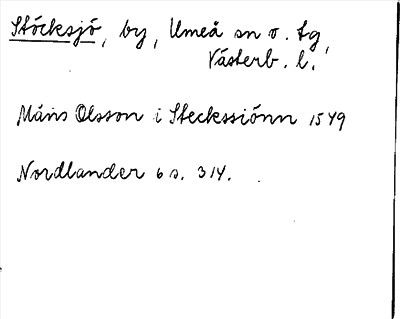 Stöcksjö, by, Umeå sn o. tg,
Västerb. l.
Måns Olsson i Steckssiönn 1549
Nordlander 6 s. 314.